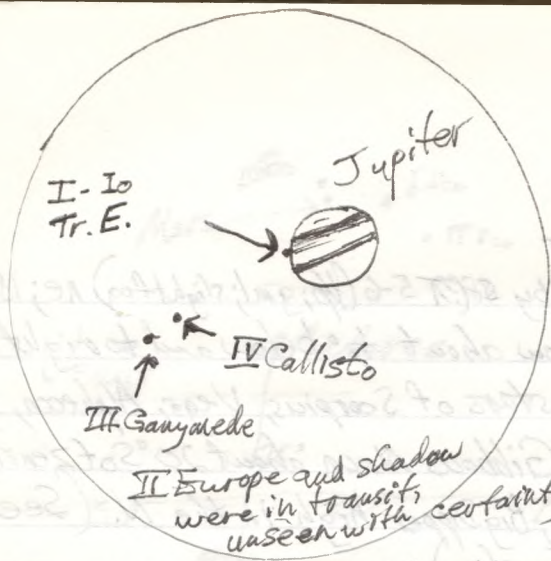 Jupiter
I - Io
Tr. E.
IV Callisto
III Ganymede
II Europe and shadow
were in transit,
unseen with certaint